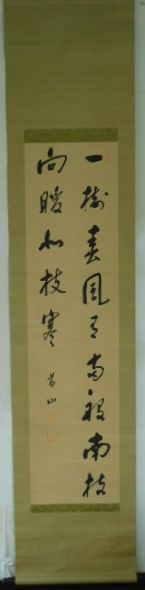 一樹春風有両般南枝
向暖北枝寒